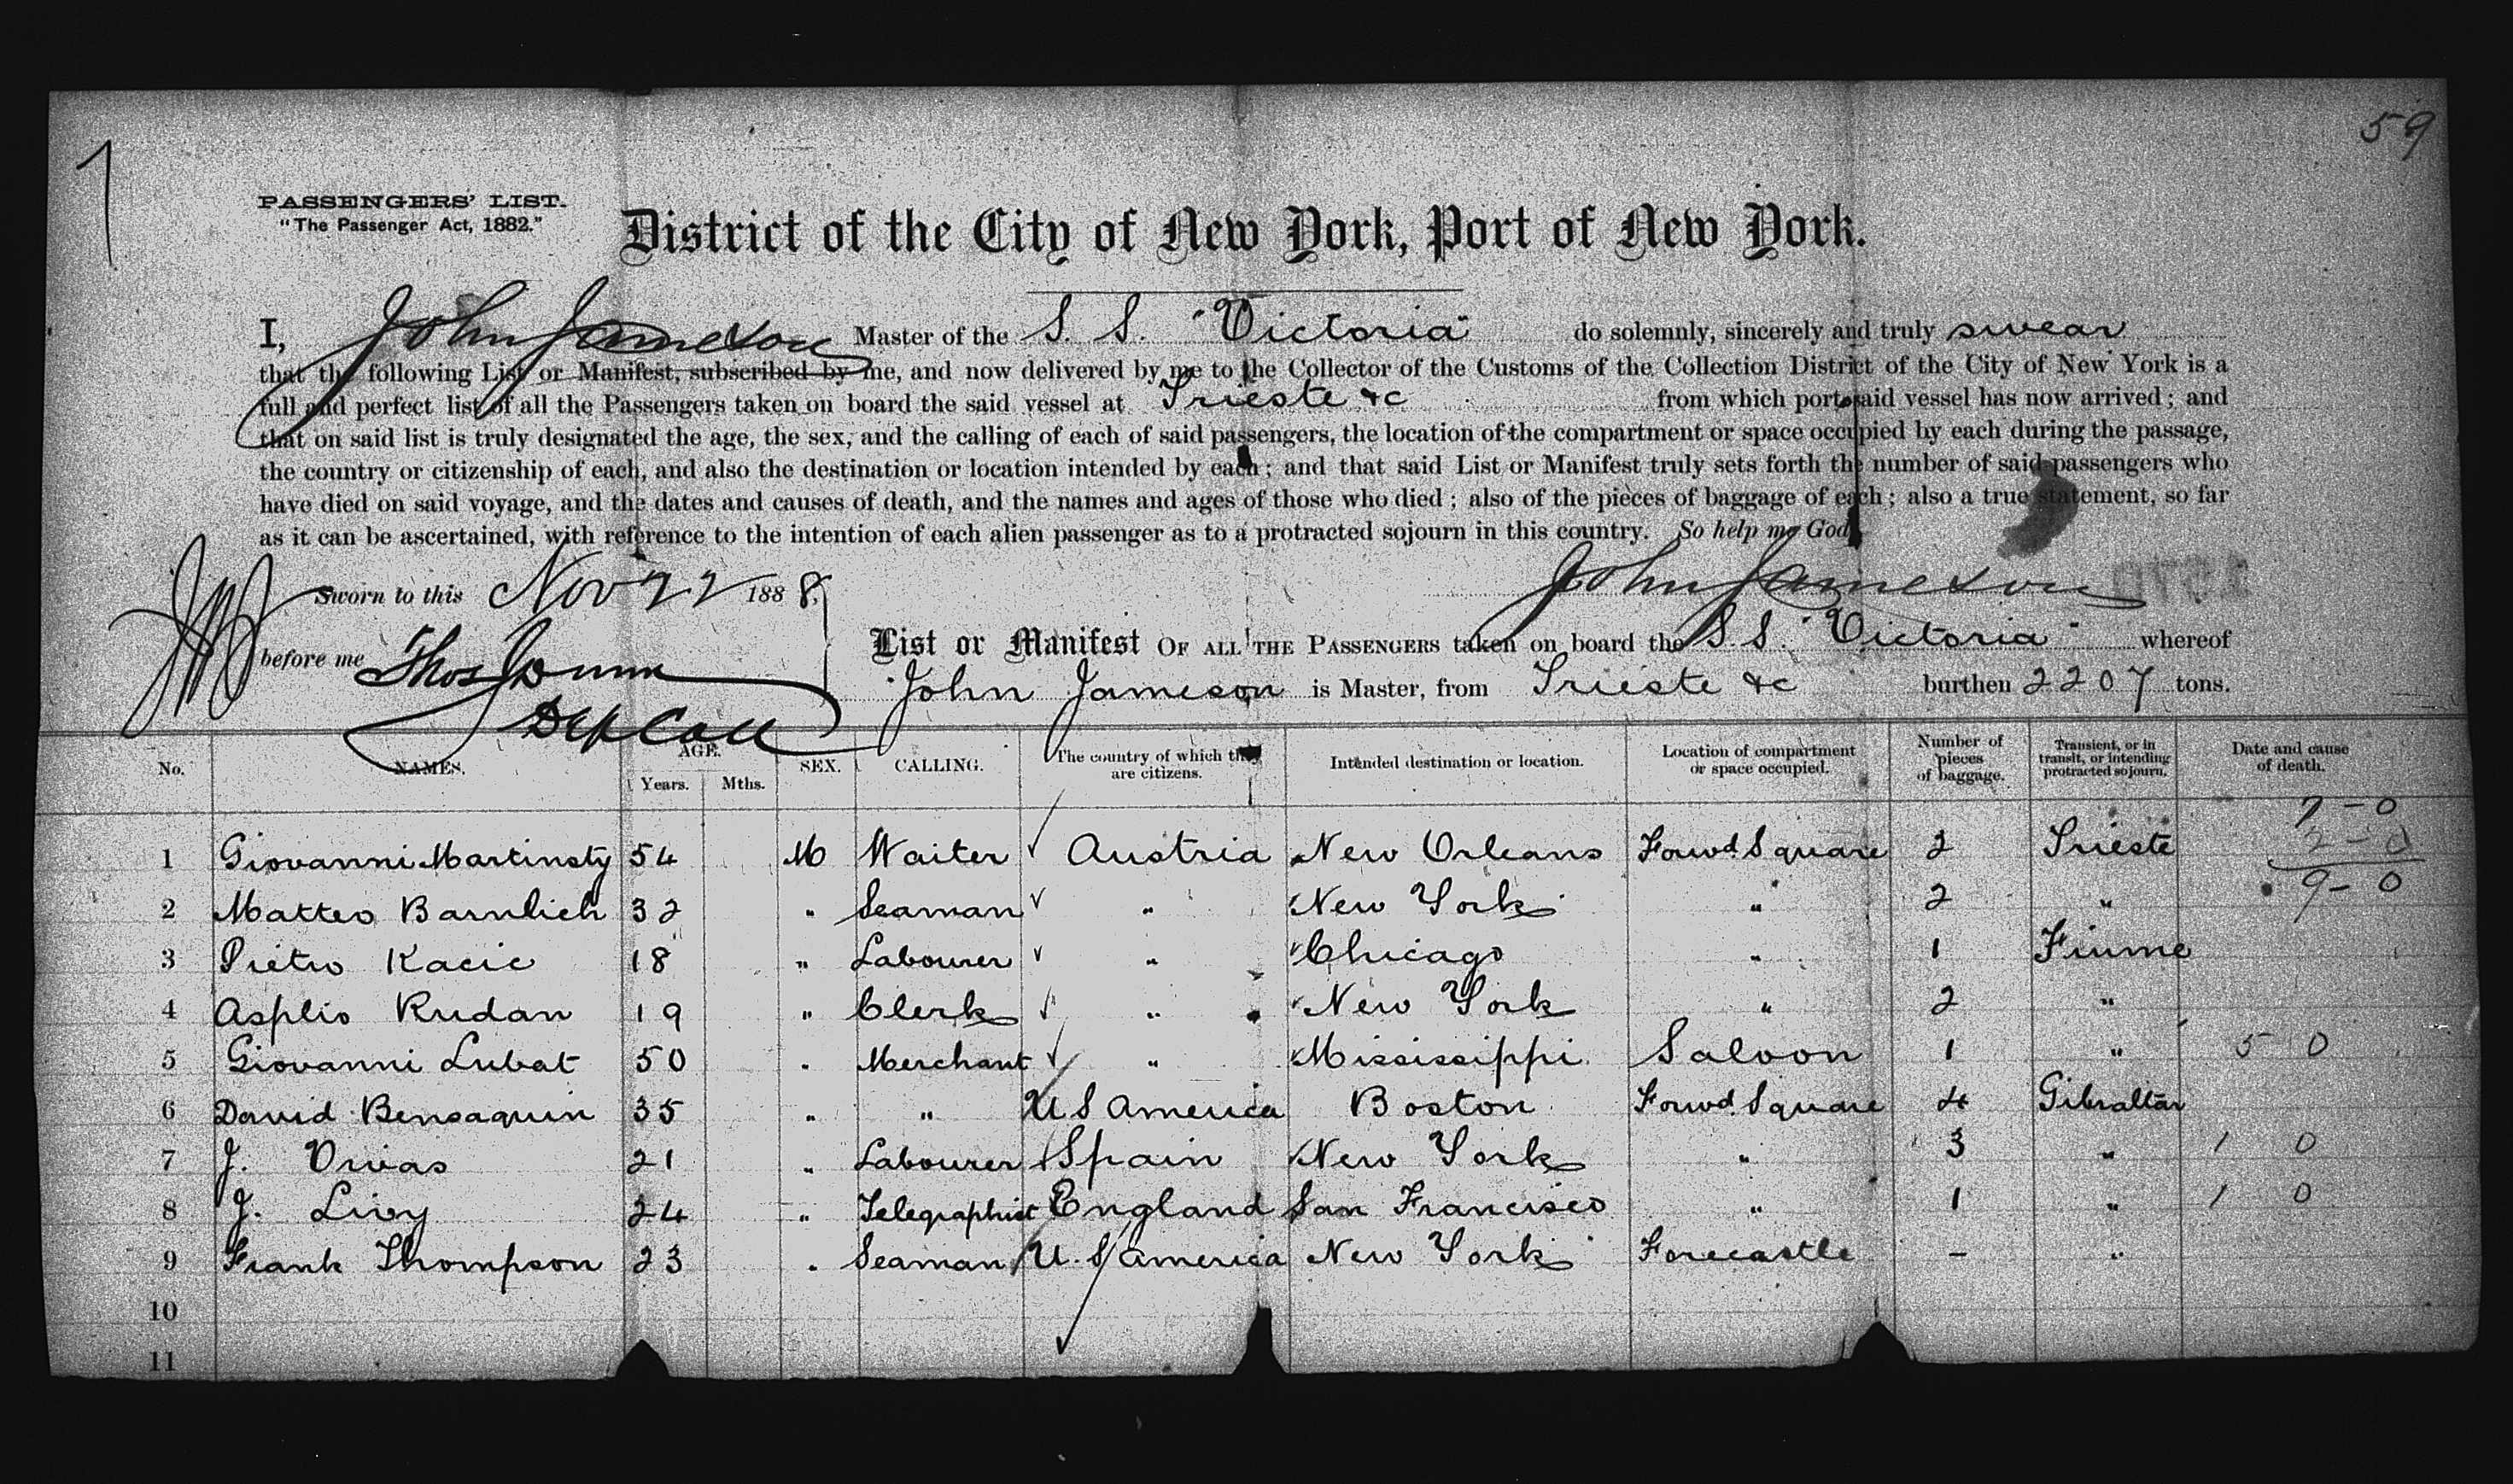 59
PASSENGERS' LIST.
"The Passenger Act, 1882."
District of the City of New York, Port of New York.
I, John Jameson Master of the S. S. "Victoria" do solemnly, sincerely and truly swear
that the following List or Manifest, subscribed by me, and now delivered by me to the Collector of the Customs of the Collection District of the City of New York is a
full and perfect list of all the Passengers taken on board the said vessel at Trieste &c from which port said vessel has now arrived; and
that on said list is truly designated the age, the sex, and the calling of each of said passengers, the location of the compartment or space occupied by each during the passage,
the country or citizenship of each, and also the destination or location intended by each; and that said List or Manifest truly sets forth the number of said passengers who
have died on said voyage, and the dates and causes of death, and the names and ages of those who died; also of the pieces of baggage of each; also a true statement, so far
as it can be ascertained, with reference to the intention of each alien passenger as to a protracted sojourn in this country. So help me God
Sworn to this Nov 22 1888, John Jameson
List or Manifest OF ALL THE PASSENGERS taken on board the S. S. "Victoria" whereof
before me Thos
John Jameson is Master, from Trieste &c burthen 2207 tons.
Dep Coll
No. NAMES. AGE. Years. Mths. SEX. CALLING. The country of which they are citizens. Intended destination or location. Location of compartment or space occupied. Number of pieces of baggage. Transient, or in transit, or intending protracted sojourn. Date and cause of death.
7-0
1 Giovanni Martinsty 54 M Waiter Austria New Orleans Forwd. Square 2 Trieste 2-0
2 Matteo Barnlich 32 " Seaman " New York " 2 " 9-0
3 Pietro Kacic 18 " Labourer " Chicago " 1 Fiume
4 Asplio Rudan 19 " Clerk " New York " 2 "
5 Giovanni Lubat 50 " Merchant " Mississippi Saloon 1 " 5 0
6 David Bensaquin 35 " " U S America Boston Forwd. Square 4 Gibraltar
7 J. Vivas 21 " Labourer Spain New York " 3 " 1 0
8 J. Livy 24 " Telegraphist England San Francisco " 1 " 1 0
9 Frank Thompson 23 " Seaman U. S America New York Forecastle - "
10
11